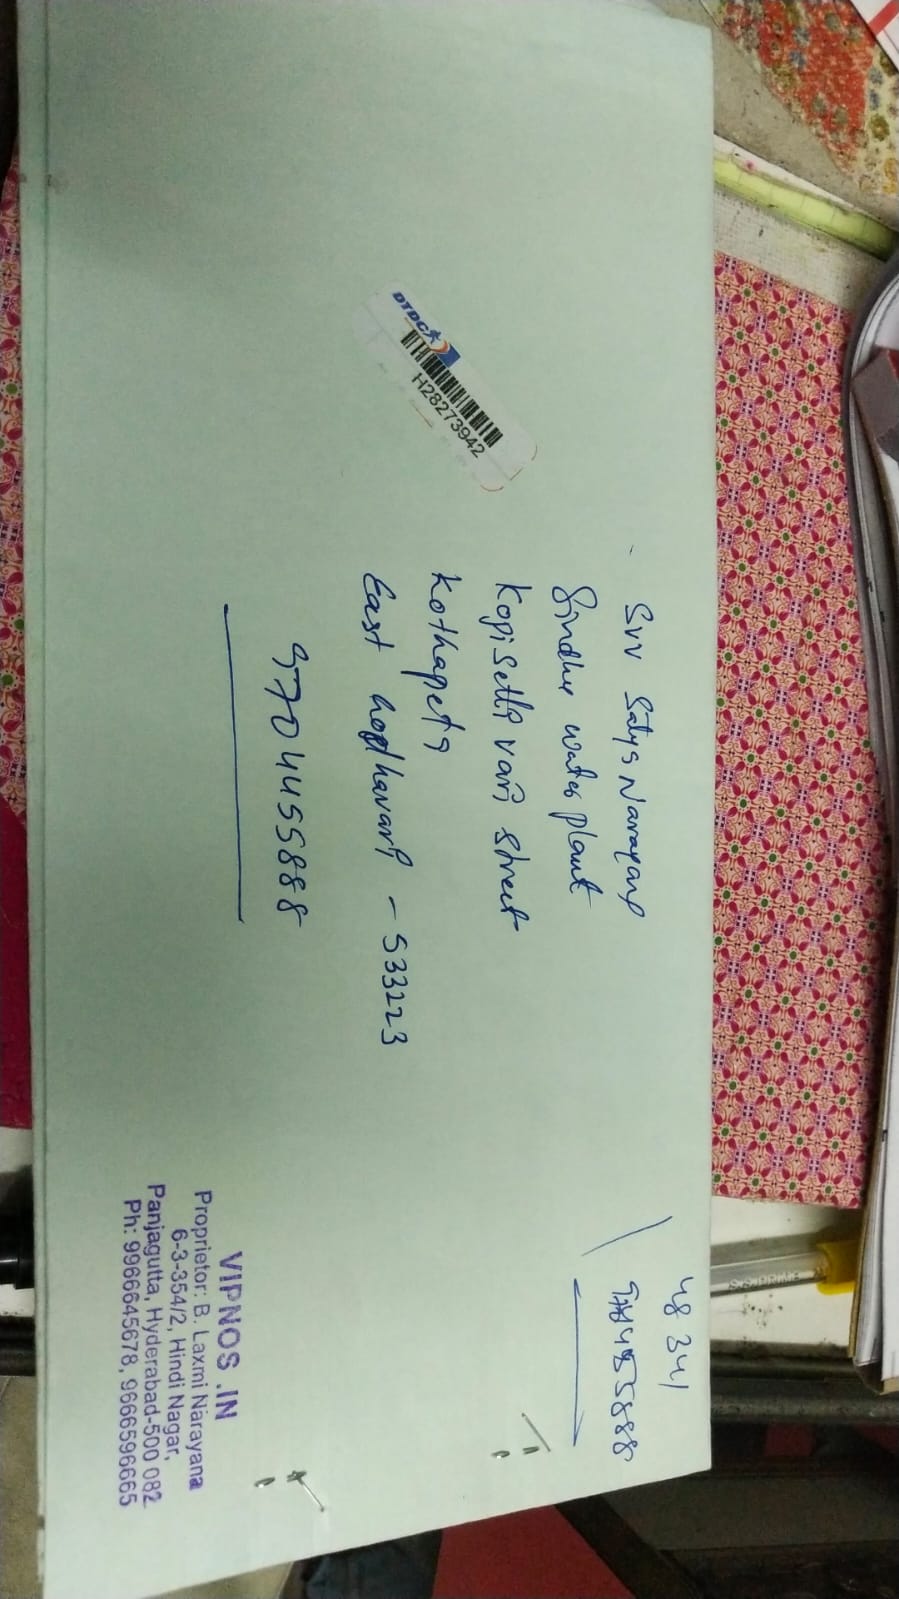 48341
SVV Satya Narayana
Sindhu water plant
Kopisetti vari street
Kothapeta
East Godhavari - 533223
9704455888
DTDC
H28273942
VIPNOS .IN
Proprietor: B. Laxmi Narayana
6-3-354/2, Hindi Nagar,
Panjagutta, Hyderabad-500 082
Ph: 9966645678, 9666596665